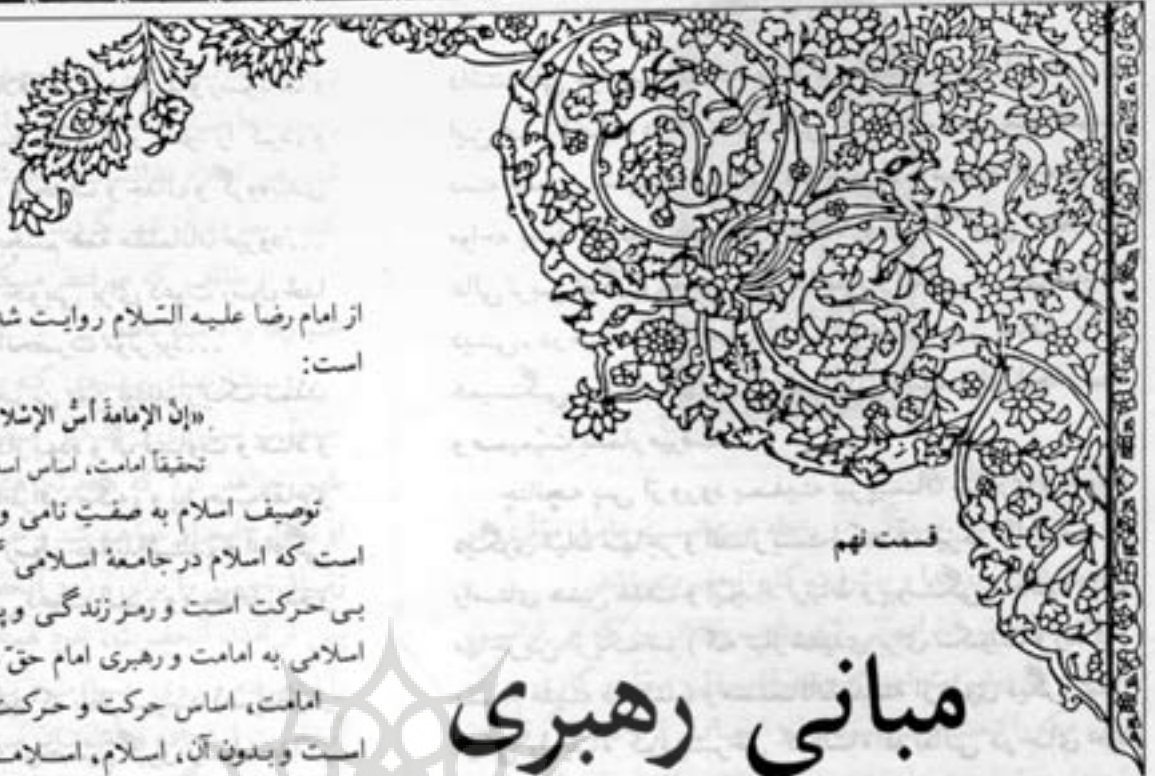 قسمت نهم
مبانی رهبری
از امام رضا علیه السّلام روایت شد
است:
«إنَّ الإمامةَ أُسُّ الإسلا
تحقیقاً امامت، اساس اسـ
توصیف اسلام به صفتِ نامی و
است که اسلام در جامعهٔ اسلامی
بی‌حرکت است و رمز زندگی و پـ
اسلامی به امامت و رهبری امام حقّ
امامت، اساس حرکت و حرکت
است و بدون آن، اسلام، اسلامـ